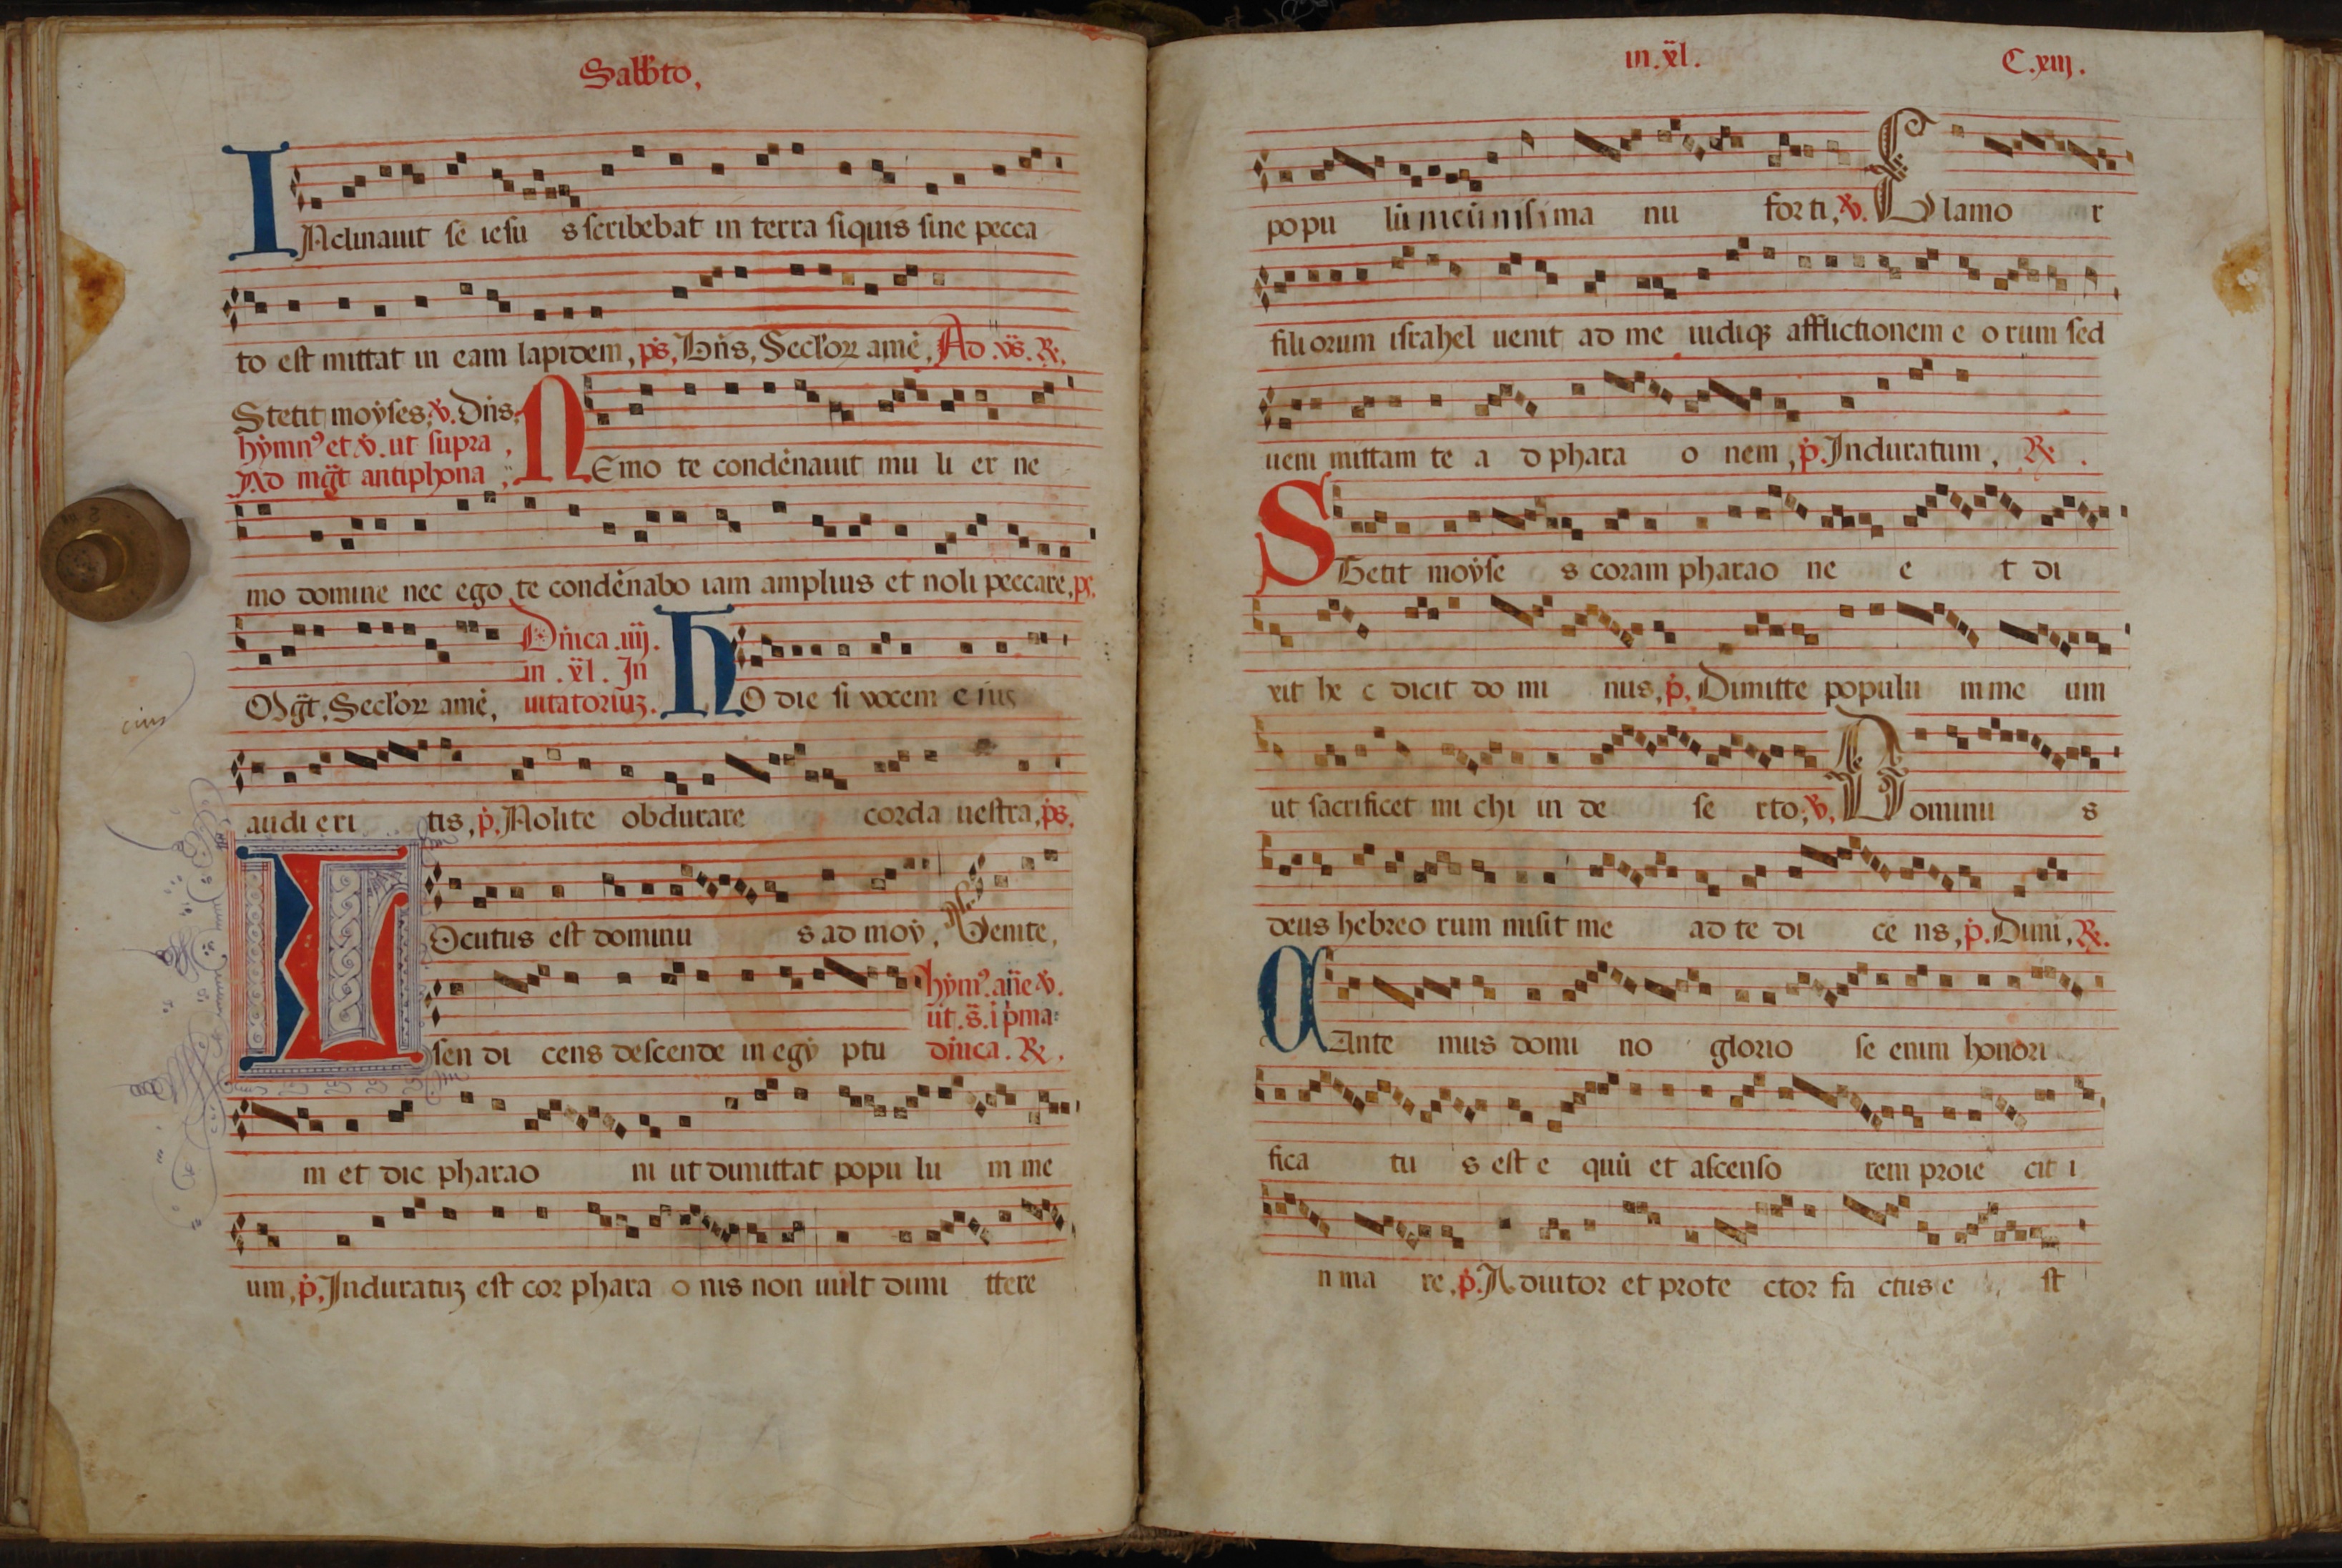 Sabb̄to,
INclinauit se iesu s scribebat in terra siquis sine pecca
to est mittat in eam lapidem, ps̄, Bn̄s, Secl'oꝝ amē, Ad .vs̄. ℟.
Stetit moẏses, ℣. Dn̄s,
hẏmnꝰ et ℣. ut supra,
Ad mḡt antiphona,
NEmo te condēnauit mu li er ne
mo domine nec ego te condēnabo iam amplius et noli peccare, ps̄,
Mḡt, Secl'oꝝ amē,
Dn̄ica .iiij.
in .x̄l. In
uitatoriuꝫ.
hO die si vocem e ius
eius
audi e ri tis, p̄. Nolite obdurare corda uestra, ps̄,
LOcutus est dominu s ad moẏ, Venite,
sen di cens descende in egẏ ptu
hẏmꝰ. an̄e ℣.
ut. s̄. i pͥma
dn̄ica. ℟.
m et dic pharao ni ut dimittat popu lu m me
um, p̄. Induratuꝫ est cor phara o nis non uult dimi ttere
in .x̄l.
C.xiij.
popu lū meū nisi ma nu forti, ℣. Clamo r
filiorum israhel uenit ad me uidiqꝫ afflictionem e o rum sed
ueni mittam te a d phara o nem, p̄. Induratum, ℟.
STetit moẏse s coram pharao ne e t di
xit he c dicit do mi nus, p̄. Dimitte populu m me um
ut sacrificet mi chi in de se rto, ℣. Dominu s
deus hebreo rum misit me ad te di ce ns, p̄. Dimi, ℟.
CAnte mus domi no glorio se enim honori
fica tu s est e quū et ascenso rem proie cit i
n ma re, p̄. Adiutor et prote ctor fa ctus e st